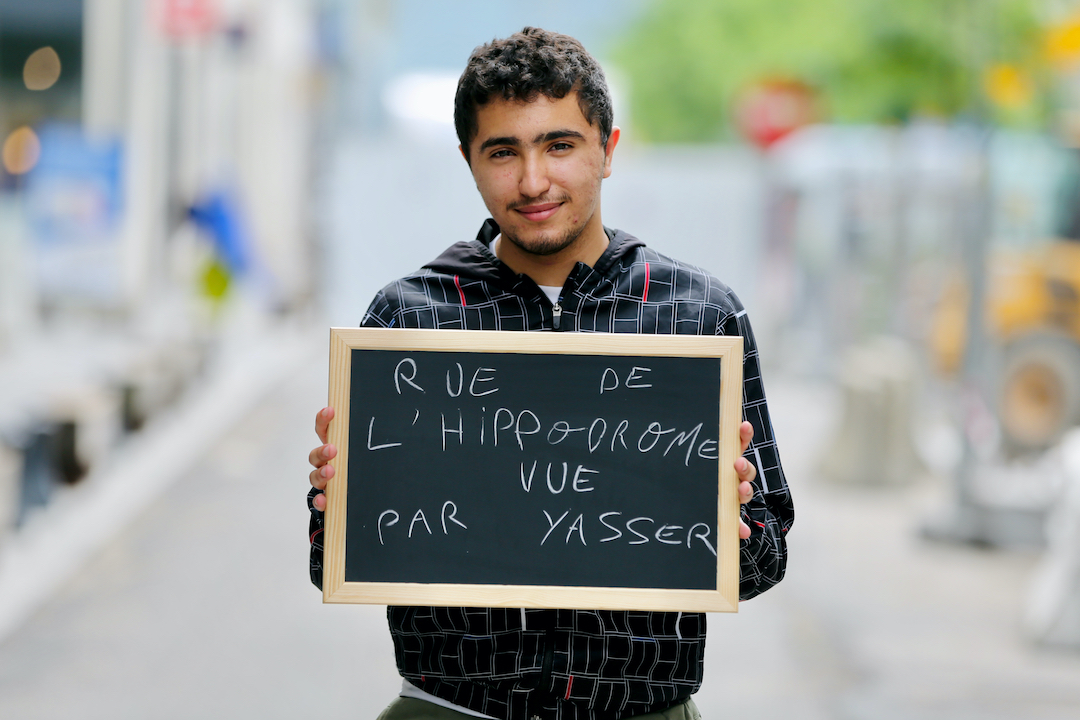 RUE DE
L'HiPPODROME
VUE
PAR YASSER